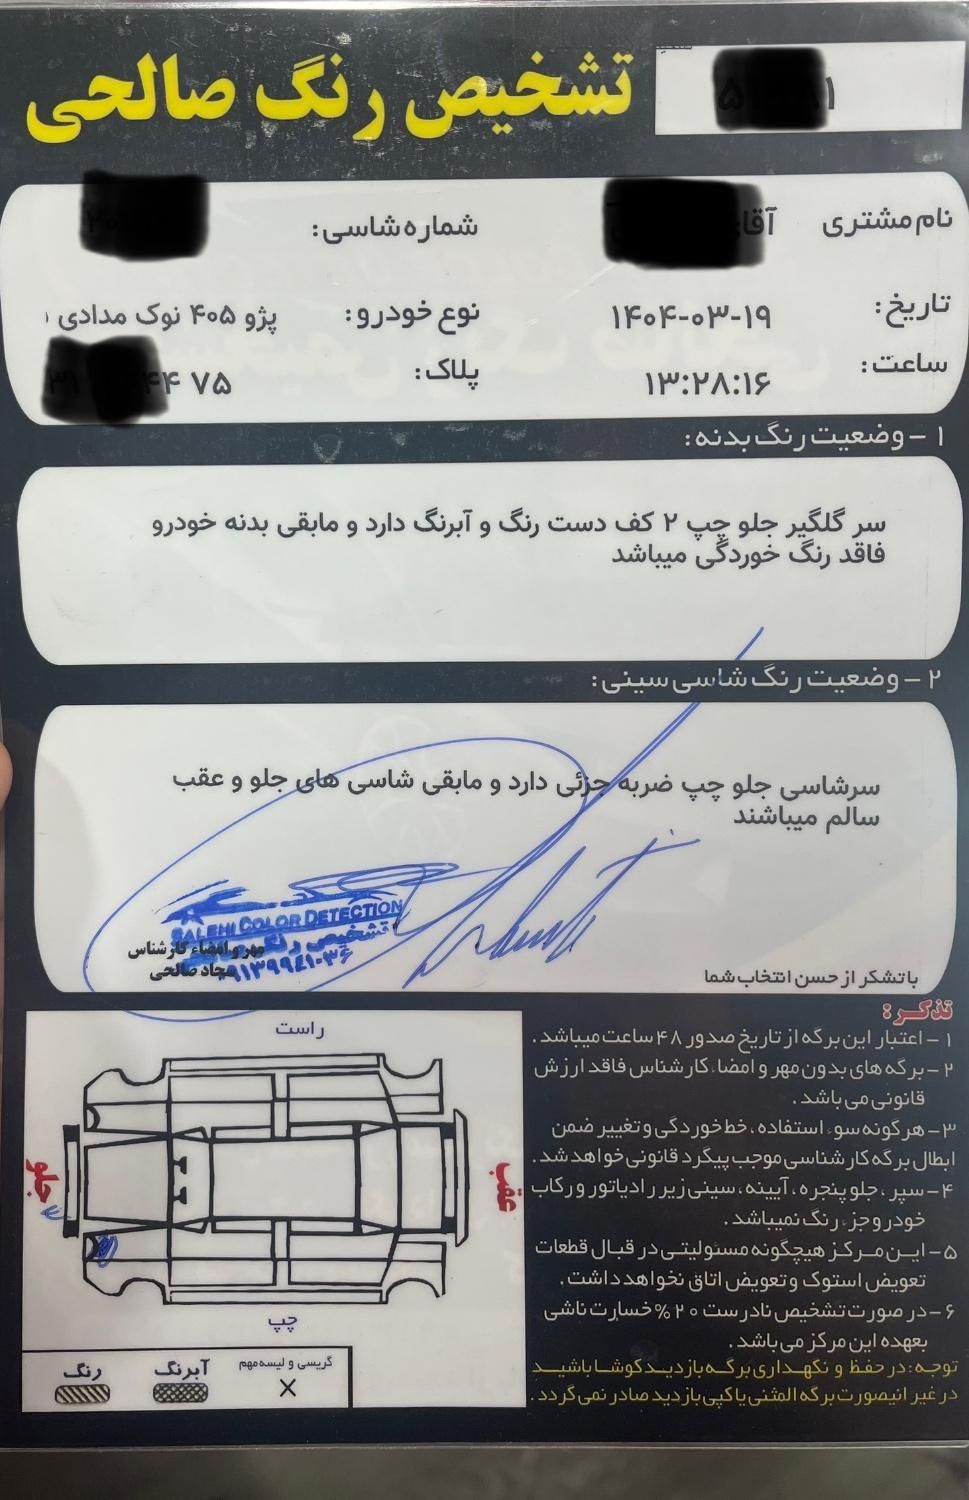 تشخیص رنگ صالحی
نام مشتری
شماره شاسی:
تاریخ: ۱۴۰۴-۰۳-۱۹
نوع خودرو: پژو ۴۰۵ نوک مدادی
ساعت: ۱۳:۲۸:۱۶
پلاک: ۷۵
۱ - وضعیت رنگ بدنه:
سر گلگیر جلو چپ ۲ کف دست رنگ و آبرنگ دارد و مابقی بدنه خودرو
فاقد رنگ خوردگی میباشد
۲ - وضعیت رنگ شاسی سینی:
سرشاسی جلو چپ ضربه جزئی دارد و مابقی شاسی های جلو و عقب
سالم میباشند
SALEHI COLOR DETECTION
تشخیص رنگ
مهر و امضاء کارشناس
سجاد صالحی
با تشکر از حسن انتخاب شما
تذکر:
۱ - اعتبار این برگه از تاریخ صدور ۴۸ ساعت میباشد.
۲ - برگه های بدون مهر و امضاء کارشناس فاقد ارزش
قانونی می باشد.
۳ - هرگونه سوء استفاده، خط خوردگی و تغییر ضمن
ابطال برگه کارشناسی موجب پیگرد قانونی خواهد شد.
۴ - سپر، جلو پنجره، آیینه، سینی زیر رادیاتور و رکاب
خودرو جزء رنگ نمیباشد.
۵ - این مرکز هیچگونه مسئولیتی در قبال قطعات
تعویض استوک و تعویض اتاق نخواهد داشت.
۶ - در صورت تشخیص نادرست ۲۰% خسارت ناشی
بعهده این مرکز می باشد.
توجه: در حفظ و نگهداری برگه بازدید کوشا باشید
در غیر اینصورت برگه المثنی یا کپی بازدید صادر نمی گردد.
راست
جلو
عقب
چپ
رنگ
آبرنگ
گریسی و لیسه مهم
X